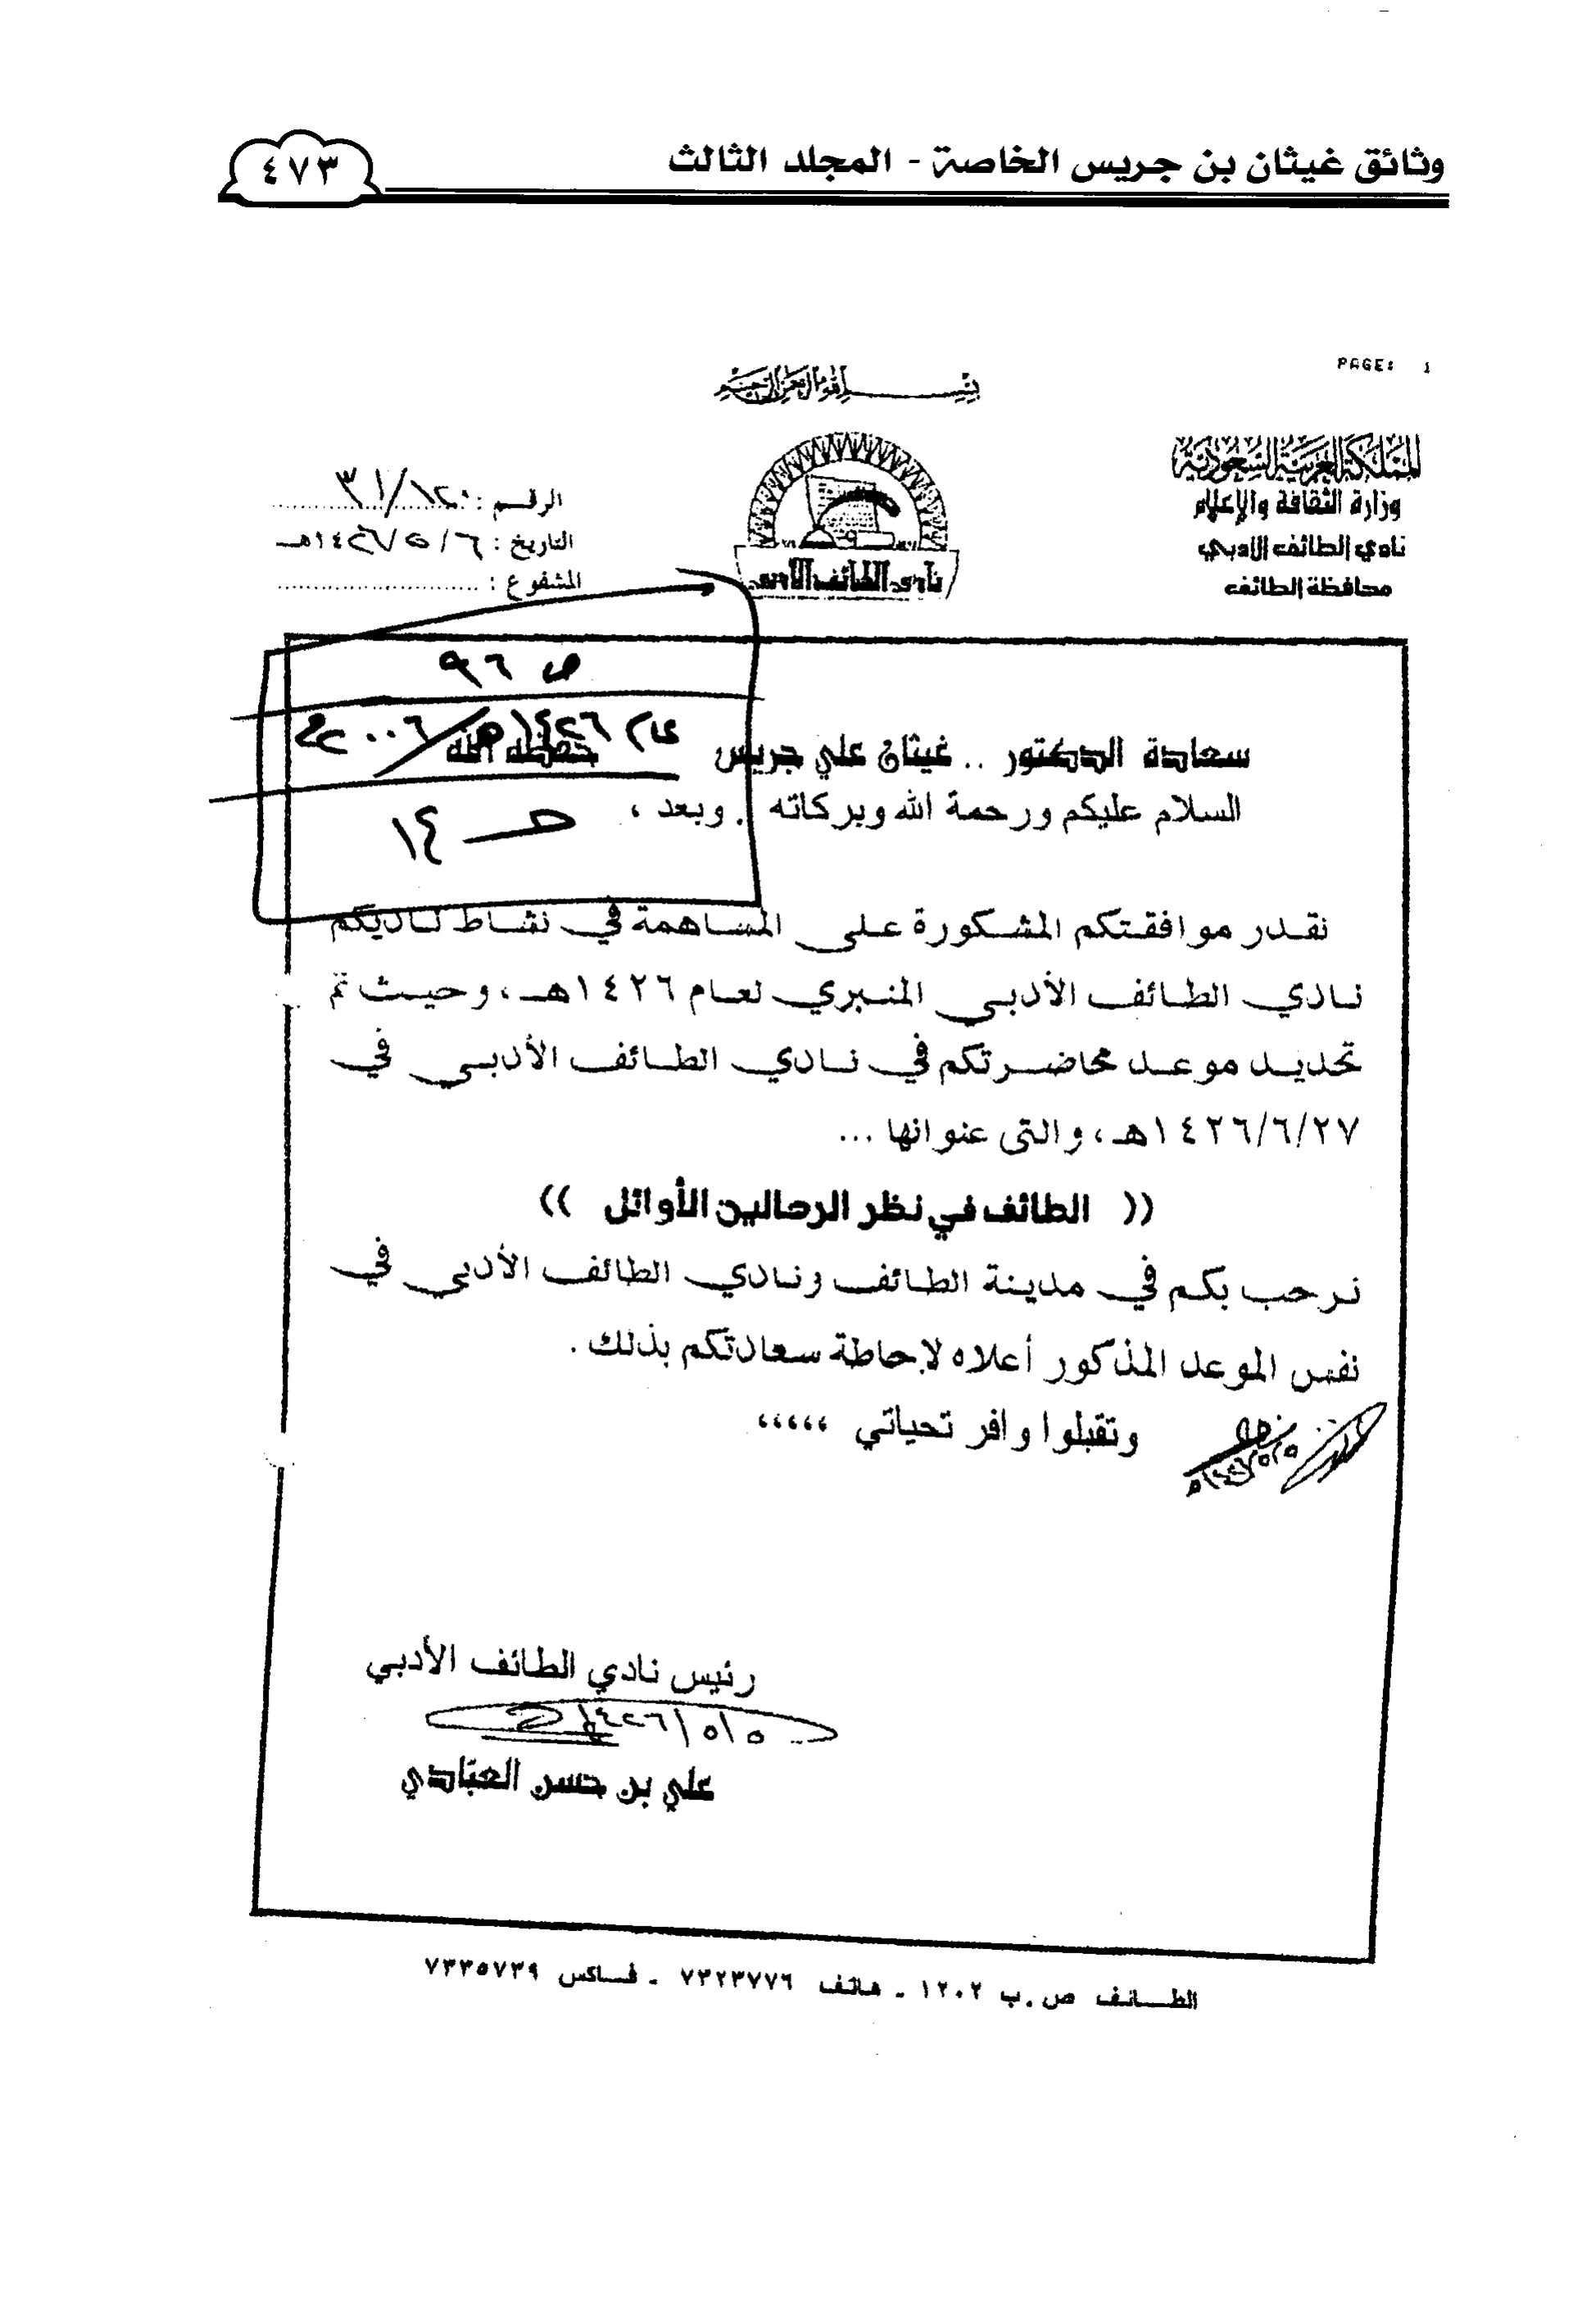 وثائق غيثان بن جريس الخاصة - المجلد الثالث
٤٧٣
PAGE: 1
بسم الله الرحمن الرحيم
المملكة العربية السعودية
وزارة الثقافة والإعلام
نادي الطائف الادبي
محافظة الطائف
نادي الطائف الأدبي
الرقم :
التاريخ : ٦ / ٥ / ١٤٢٦هـ
المشفوع :
ص ٩٦
عام ١٤٢٦هـ / ٢٠٠٦م
حـ ١٤
سعادة الدكتور .. غيثان علي جريس حفظه الله
السلام عليكم ورحمة الله وبركاته . وبعد ،
نقدر موافقتكم المشكورة على المساهمة في نشاط ناديكم
نادي الطائف الأدبي المنبري لعام ١٤٢٦هـ ، وحيث تم
تحديد موعد محاضرتكم في نادي الطائف الأدبي في
١٤٢٦/٦/٢٧هـ ، والتى عنوانها ...
(( الطائف في نظر الرحالين الأوائل ))
نرحب بكم في مدينة الطائف ونادي الطائف الأدبي في
نفس الموعد المذكور أعلاه لإحاطة سعادتكم بذلك .
وتقبلوا وافر تحياتي ،،،،،
رئيس نادي الطائف الأدبي
١٤٢٦/٥/٥
علي بن حسن العبّادي
الطائف ص . ب ١٢٠٢ - هاتف ٧٣٢٣٧٧٦ - فساكس ٧٣٣٥٧٣٩